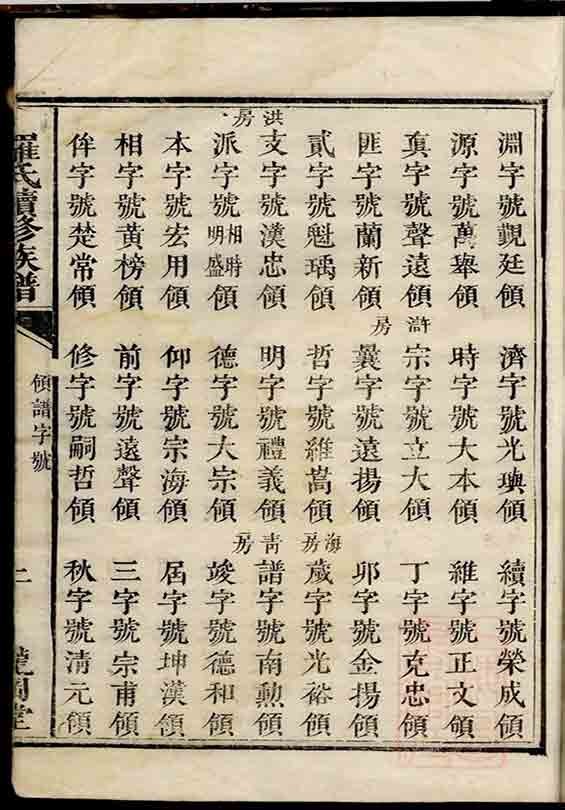 淵字號覲廷領
源字號萬舉領
眞字號聲遠領
匪字號蘭新領
貳字號魁瑀領
洪房
支字號漢忠領
派字號相時明盛領
本字號宏用領
相字號黃榜領
侔字號楚常領
濟字號光璵領
時字號大本領
滸房
宗字號立大領
曩字號遠揚領
哲字號維嵩領
明字號禮義領
德字號大宗領
仰字號宗海領
前字號遠聲領
修字號嗣哲領
續字號榮成領
維字號正文領
丁字號克忠領
卯字號金揚領
海房
歲字號光裕領
青房
譜字號南勲領
竣字號德和領
屆字號坤漢領
三字號宗甫領
秋字號清元領
羅氏續修族譜
領譜字號
二
堂